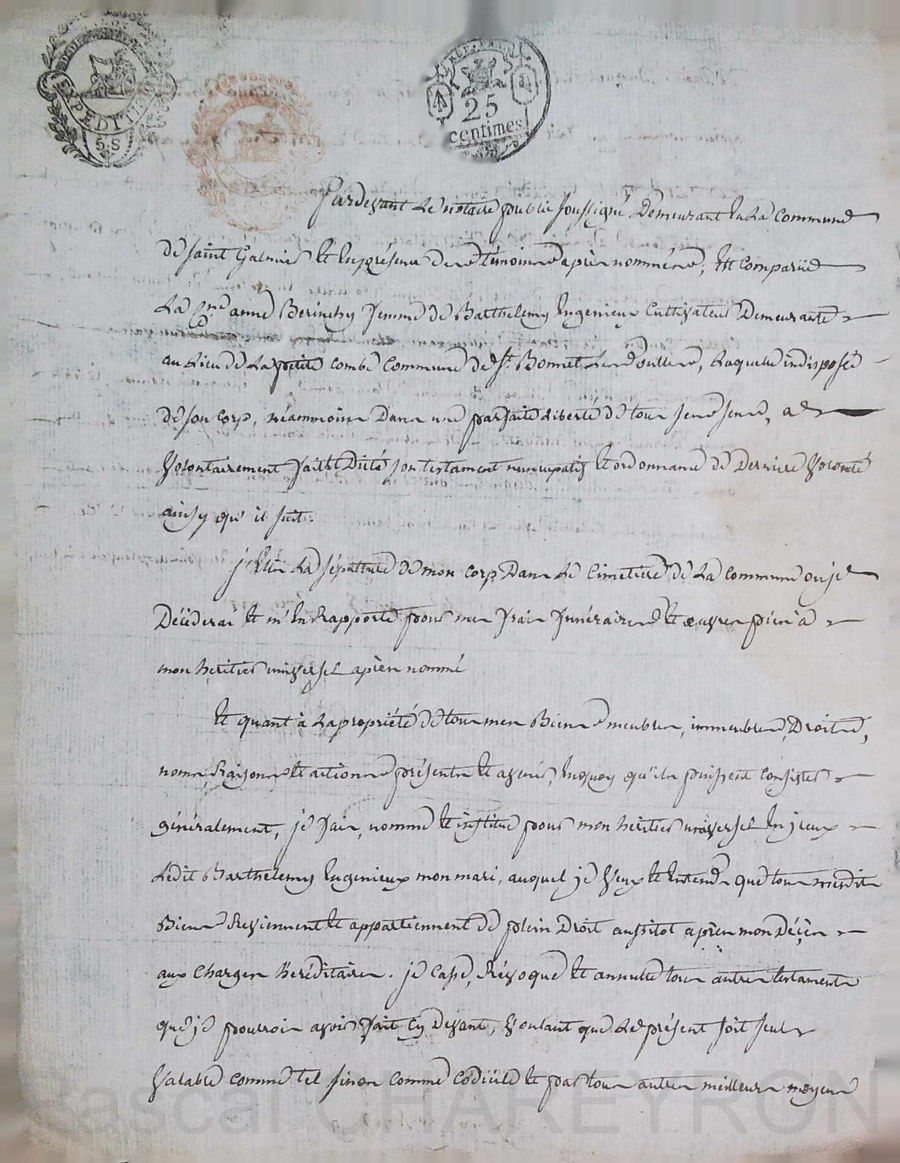 EXPEDITION
5.S
REP. FRA
25
centimes
Pardevant Le notaire public soussigné, Demeurant En La Commune
de saint Galmier Et En présence des témoins après nommés, Est comparüe
La Cne anne Berinchy femme de Barthelemy Ingenieux Cultivateur Demeurante
au Lieu de La petite combe Commune de St Bonnet Les Oulles, Laquelle indisposée
de son corps, néammoins Dans une parfaite Liberté de tous ses sens, a
Volontairement fait Et Dicté son testament nuncupatif Et ordonnance de Derniere Volonté
ainsy qu'il suit.
j'Elis La sépulture de mon corps Dans Le Cimetiere de La Commune ou je
Déciderai Et m'En Rapporte pour mes frais funéraires Et œuvres pies à
mon heritier universel après nommé
Et quant à La propriété de tous mes Biens meubles, immeubles, Droits,
noms, Raisons Et actions présents Et avenir, En quoy qu'ils puissent Consister
généralement, je fais, nomme Et institue pour mon heritier universel En jceux
Ledit Barthelemy Ingenieux mon mari, auquel je Veux Et Entends que tous mesdits
Biens Reviennent Et appartiennent de plein Droit aussitot après mon Décès
aux Charges héréditaires. je Casse, Révoque Et annulle tous autres testaments
que je pourrois avoir fait Cy Devant, Voulant que Le présent soit seul
Valable comme tel sinon comme codicile Et par tous autres meilleurs moyens
Pascal CHAREYRON